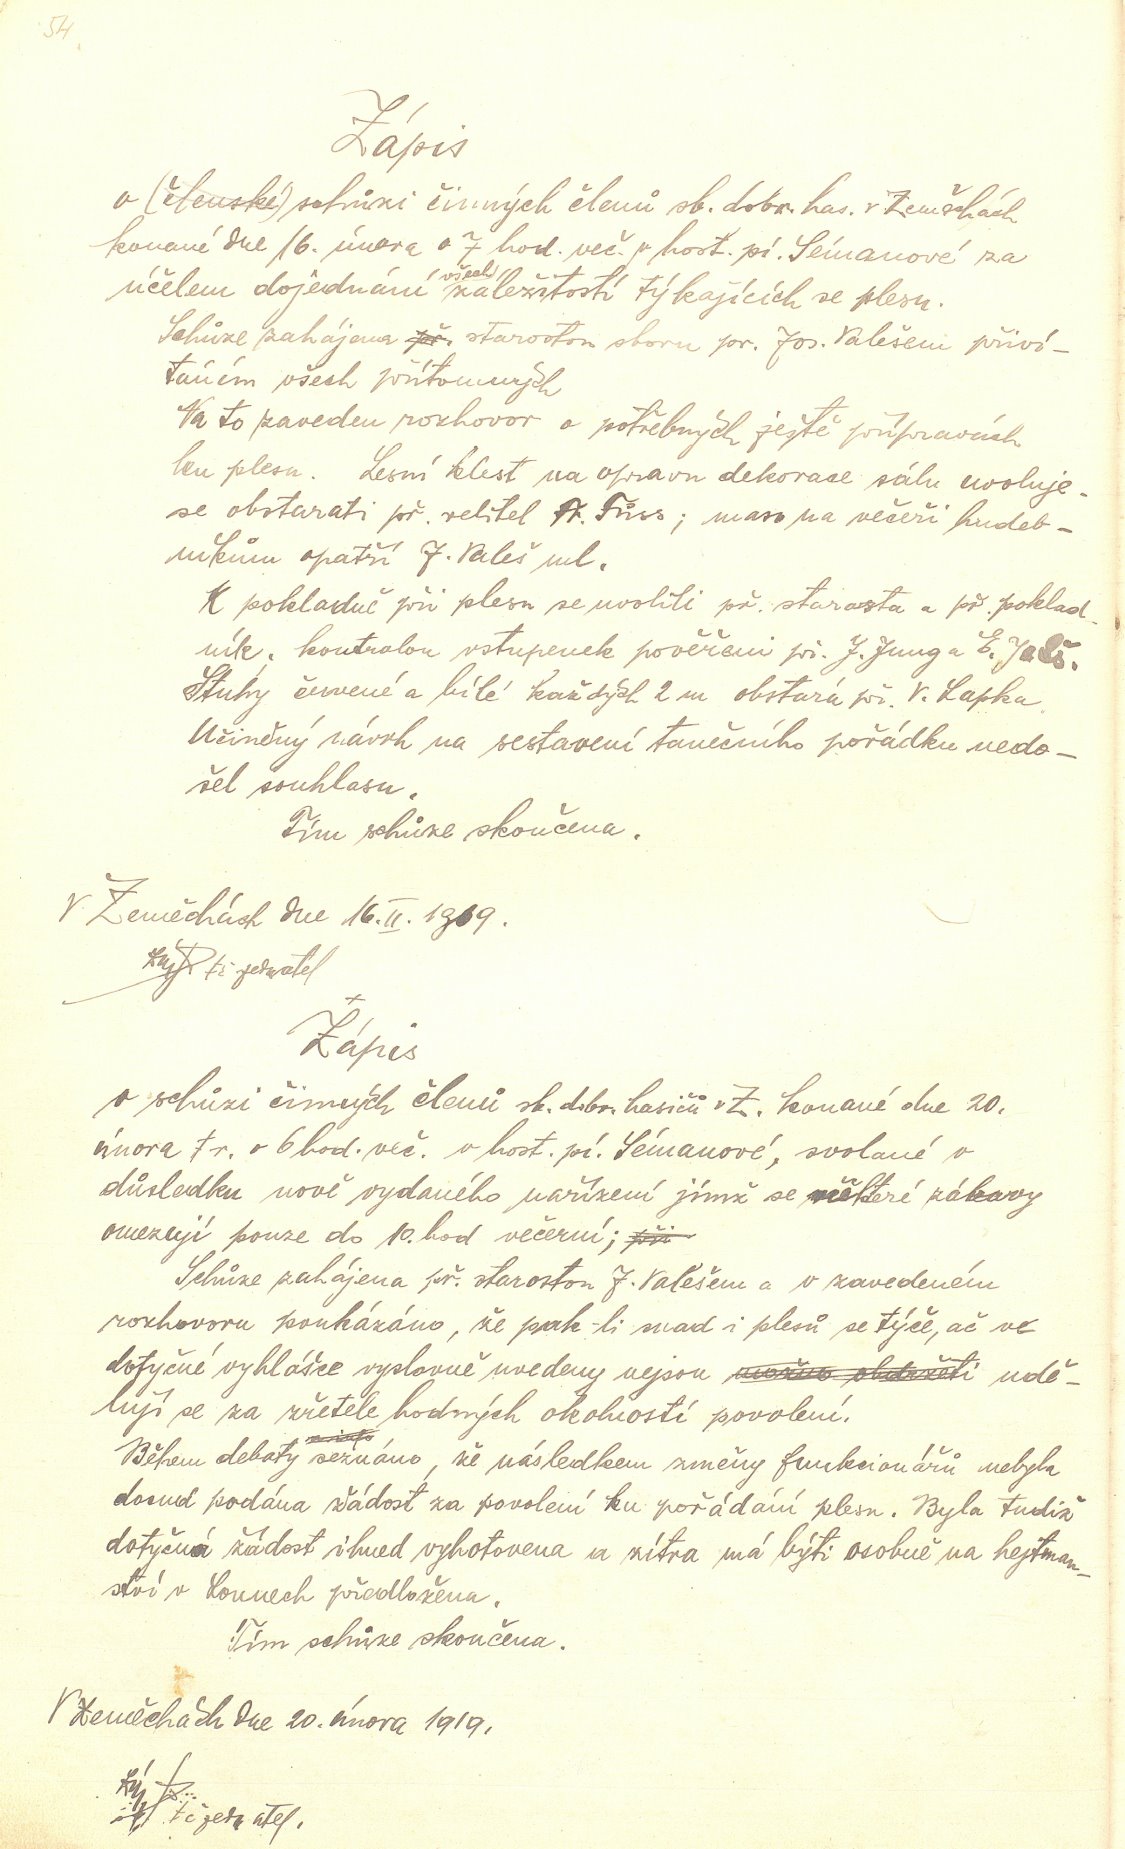 54
Zápis
o (členské) schůzi činných členů sb. dobr. has. v Žeměchách
konané dne 16. února o 7 hod. več. v host. pí. Sémanové za
účelem dojednání všech záležitostí týkajících se plesu.
Schůze zahájena př. starostou sboru p. Jos. Valešem přiví-
táním všech přítomných
Na to zaveden rozhovor o potřebných ještě přípravách
ku plesu. Lesní klest na opravu dekorace sálu uvoluje-
se obstarati př. velitel Fr. Füss; maso na večeři hudeb-
níkům opatří J. Valeš ml.
K pokladně při plesu se uvolili př. starosta a př. poklad-
ník. kontrolou vstupenek pověřeni př. J. Jung a E.
Stuhy červené a bílé každých 2 m obstará př. V. Lapka.
Učiněný návrh na sestavení tanečního pořádku nedo-
šel souhlasu.
Tím schůze skončena.
V Žeměchách dne 16. II. 1919.
jednatel
Zápis
o schůzi činných členů sb. dobr. hasičů v Ž. konané dne 20.
února t r. o 6 hod. več. v host. pí. Sémanové, svolané v
důsledku nově vydaného nařízení jímž se některé zábavy
omezují pouze do 10. hod večerní; při
Schůze zahájena př. starostou J. Valešem a v zavedeném
rozhovoru poukázáno, že pak-li snad i plesů se týče, ač ve
dotyčné vyhlášce vyslovně uvedeny nejsou možno obdržeti udě-
lují se za zřetele hodných okolností povolení.
Během debaty seznáno, že následkem změny funkcionářů nebyla
dosud podána žádost za povolení ku pořádání plesu. Byla tudíž
dotyčná žádost ihned vyhotovena a zítra má býti osobně na hejtman-
ství v Lounech předložena.
Tím schůze skončena.
V Žeměchách dne 20. února 1919.
jednatel.